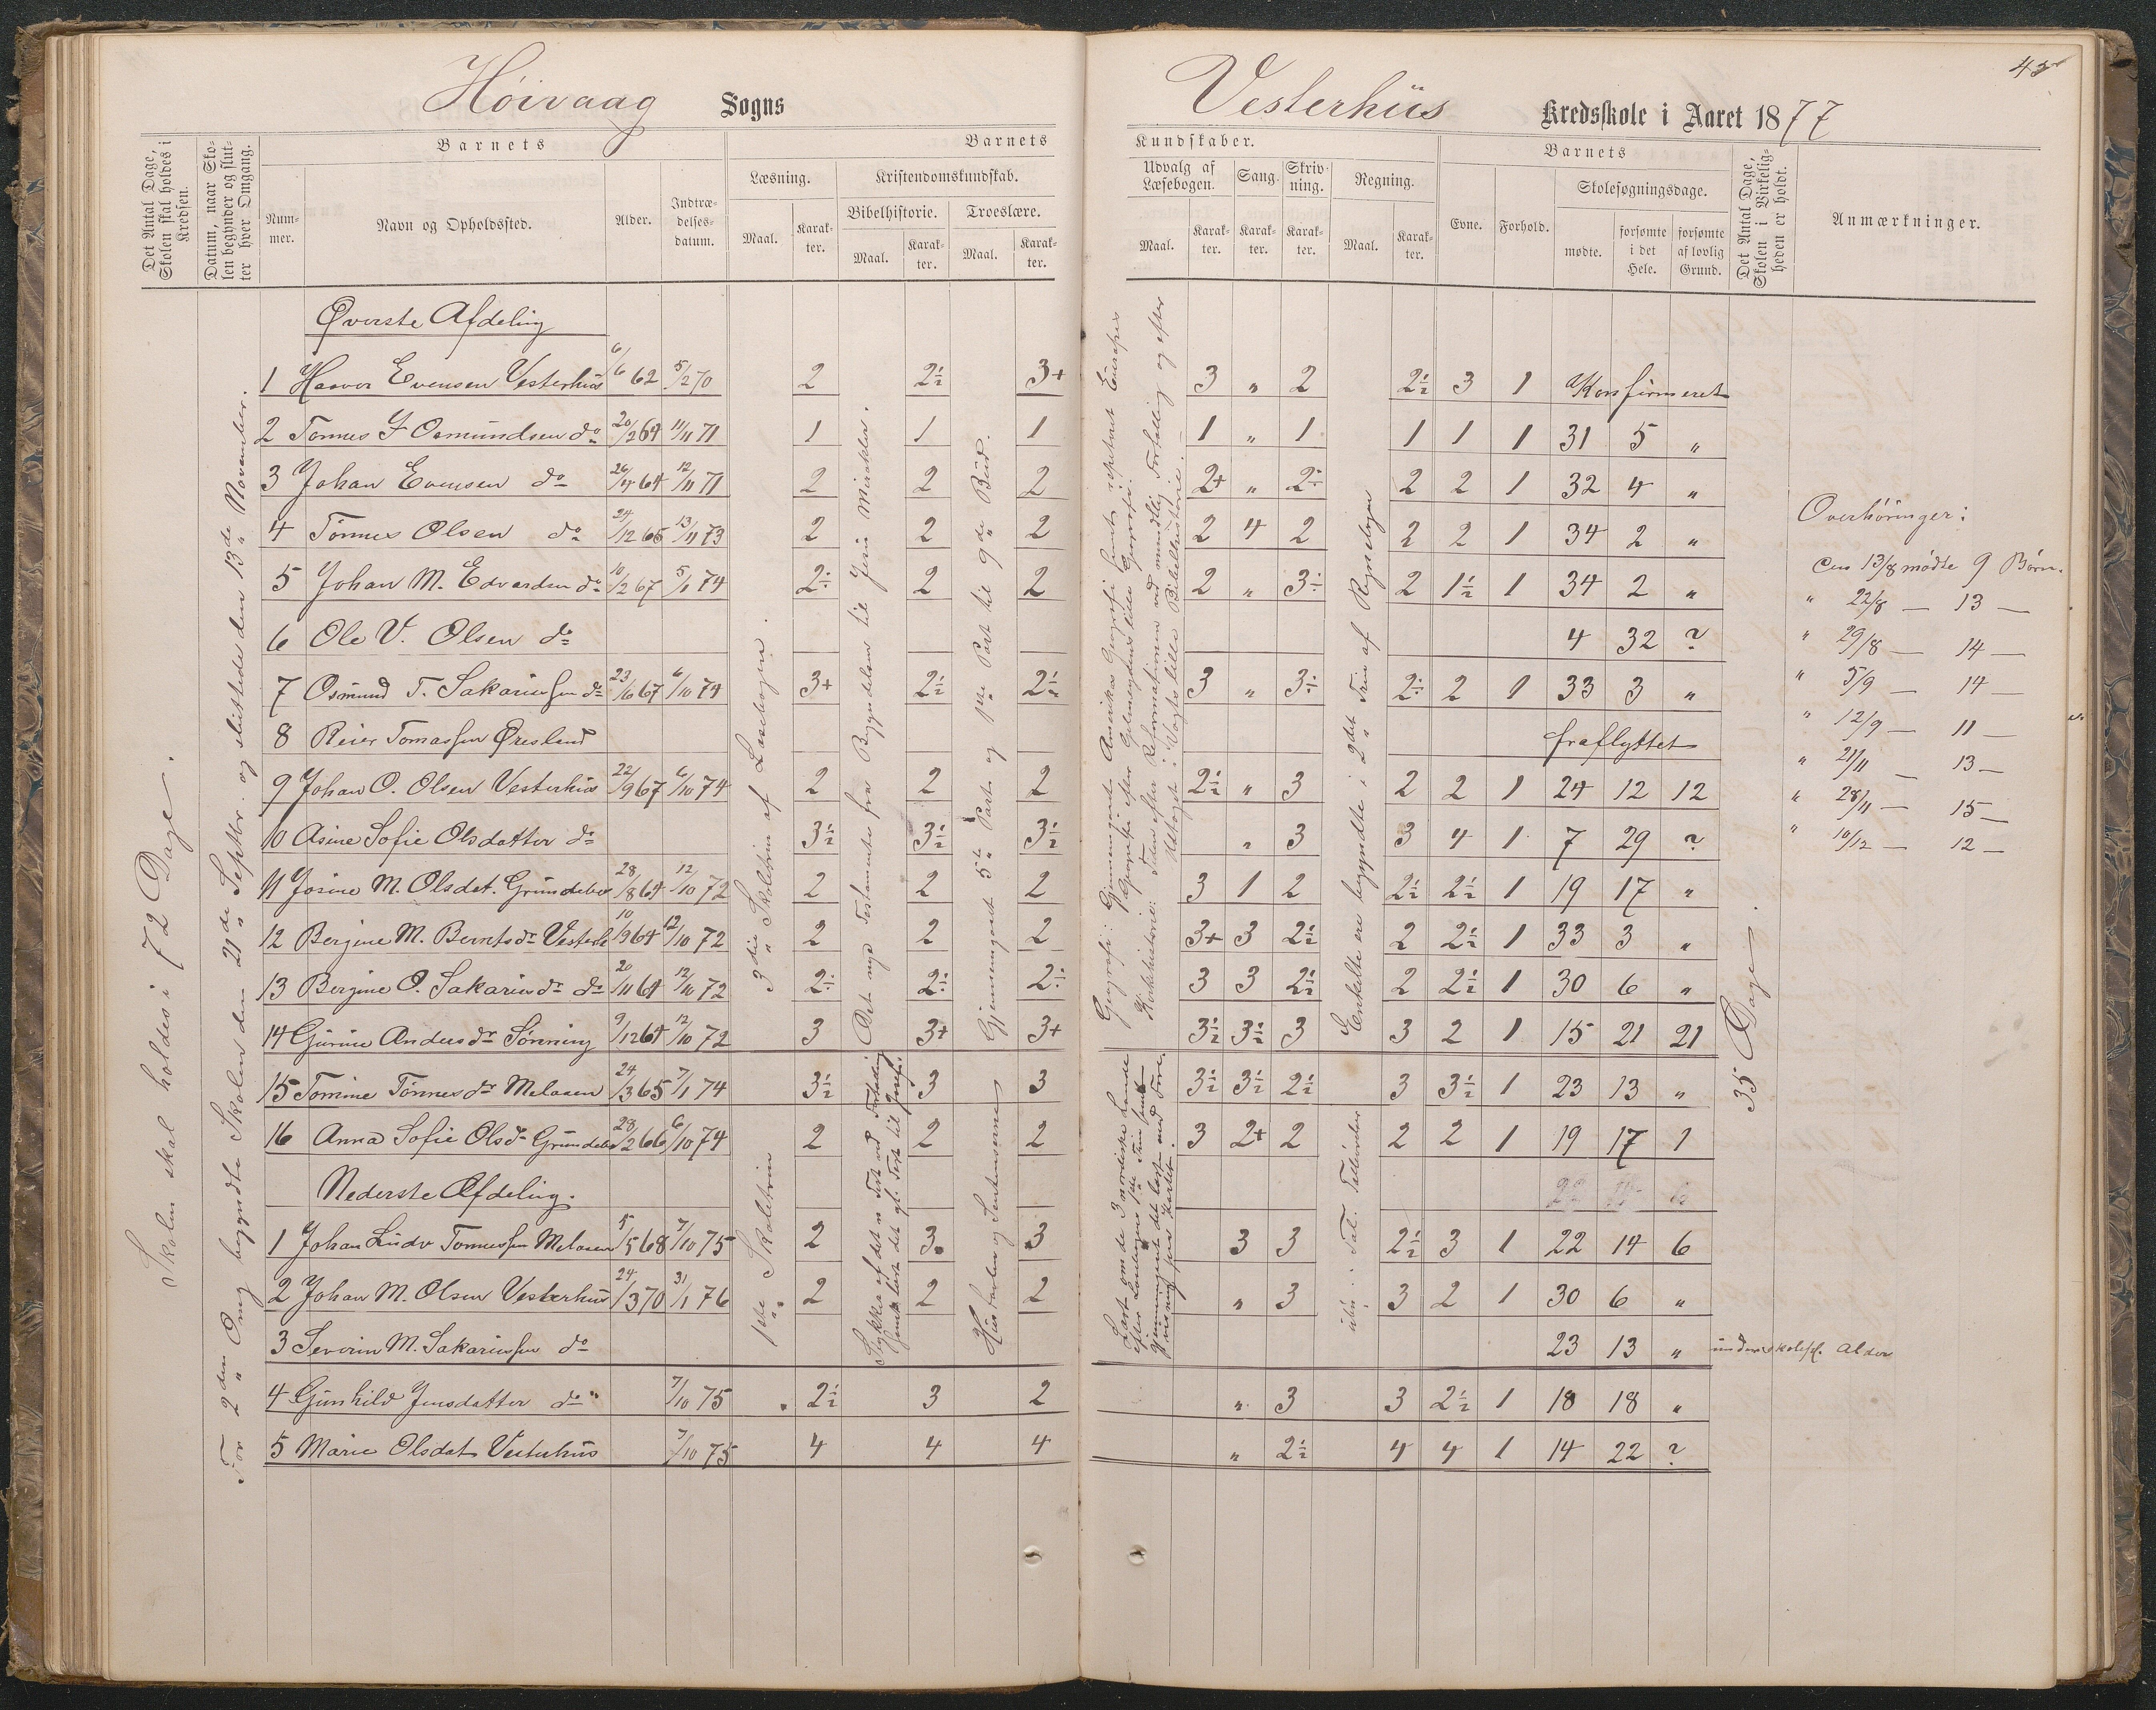 Høivaag Sogns Vesterhus Kredsskole i Aaret 1877
Det Antal Dage, Skolen skal holdes i Kredsen.
Datum, naar Skolen begynder og slutter hver Omgang.
Barnets
Nummer.
Navn og Opholdssted.
Alder.
Indtrædelsesdatum.
Barnets Kundskaber.
Læsning.
Maal.
Karakter.
Kristendomskundskab.
Bibelhistorie.
Maal.
Karakter.
Troeslære.
Maal.
Karakter.
Udvalg af Læsebogen.
Maal.
Karakter.
Sang.
Karakter.
Skrivning.
Karakter.
Regning.
Maal.
Karakter.
Barnets
Evne.
Forhold.
Skolesøgningsdage.
mødte.
forsømte i det Hele.
forsømte af lovlig Grund.
Det Antal Dage, Skolen i Virkeligheden er holdt.
Anmærkninger.
Skolen skal holdes i 72 Dage.
For 2den Omg begyndte Skolen den 21de Septbr. og sluttede den 13de November.
3die Skoletrin af Læsebogen.
Det nye Testamente fra Begyndelsen til Jesu Mirakler.
Gjennemgaaet 5te Part og 1ste Part til 9de Bud.
Enkelte ere begyndte i 2det Trin af Regnebogen
35 Dage.
Øverste Afdeling
1 Haavor Evensen Vesterhus 6/6 62 5/2 70 2 2÷ 3+ 3 " 2 2÷ 3 1 Konfirmeret
2 Tønnes G Osmundsen do 20/2 64 11/11 71 1 1 1 1 " 1 1 1 1 31 5 "
3 Johan Evensen do 26/4 64 12/11 71 2 2 2 2+ " 2÷ 2 2 1 32 4 "
4 Tønnes Olsen do 24/12 65 13/11 73 2 2 2 2 4 2 2 2 1 34 2 "
5 Johan M. Edvardsen do 10/2 67 5/1 74 2÷ 2 2 2 " 3÷ 2 1÷ 1 34 2 "
6 Ole V. Olsen do 4 32 ?
7 Osmund T. Sakariassen do 23/6 67 6/10 74 3+ 2÷ 2÷ 3 " 3÷ 2÷ 2 1 33 3 "
8 Reier Tomassen Øresland fraflyttet
9 Johan O. Olsen Vesterhus 22/9 67 6/10 74 2 2 2 2÷ " 3 2 2 1 24 12 12
10 Asine Sofie Olsdatter do 3÷ 3÷ 3÷ " 3 3 4 1 7 29 ?
11 Josine M. Olsdat. Grundeber 28/8 64 12/10 72 2 2 2 3 1 2 2÷ 2÷ 1 19 17 "
12 Bergine M. Berntsdr Vesterh 10/9 64 12/10 72 2 2 2 3+ 3 2÷ 2 2÷ 1 33 3 "
13 Bergine O. Sakariasdr do 20/11 64 12/11 72 2÷ 2÷ 2÷ 3 3 2÷ 2 2÷ 1 30 6 "
14 Gurine Andersdr Sønning 9/12 64 12/10 72 3 3+ 3+ 3÷ 3÷ 3 3 2 1 15 21 21
15 Tomine Tønnesdr Melaaen 24/3 65 7/1 74 3÷ 3 3 3÷ 3÷ 2÷ 3 3÷ 1 23 13 "
16 Anna Sofie Olsdr Grundeber 28/2 66 6/10 74 2 2 2 3 2+ 2 2 2 1 19 17 1
Nederste Afdeling.
1ste Skoletrin
Hustavlen og Sentenserne
1 Johan Ludv Tønnessen Melaaen 5/5 68 7/10 75 2 3 3 3 3 2÷ 3 1 22 14 6
2 Johan M. Olsen Vesterhus 24/3 70 31/1 76 2 2 2 " 3 3 2 1 30 6 "
3 Severin M. Sakariassen do 23 13 " under skolepl. Alder
4 Gunhild Jensdatter do 7/10 75 2÷ 3 2 " 3 3 2÷ 1 18 18 "
5 Marie Olsdat Vesterhus 7/10 75 4 4 4 " 2÷ 4 4 1 14 22 ?
Overhøringer:
Den 13/8 mødte 9 Børn.
" 22/8 — 13 —
" 29/8 — 14 —
" 5/9 — 14 —
" 12/9 — 11 —
" 21/11 — 13 —
" 28/11 — 15 —
" 10/12 — 12 —